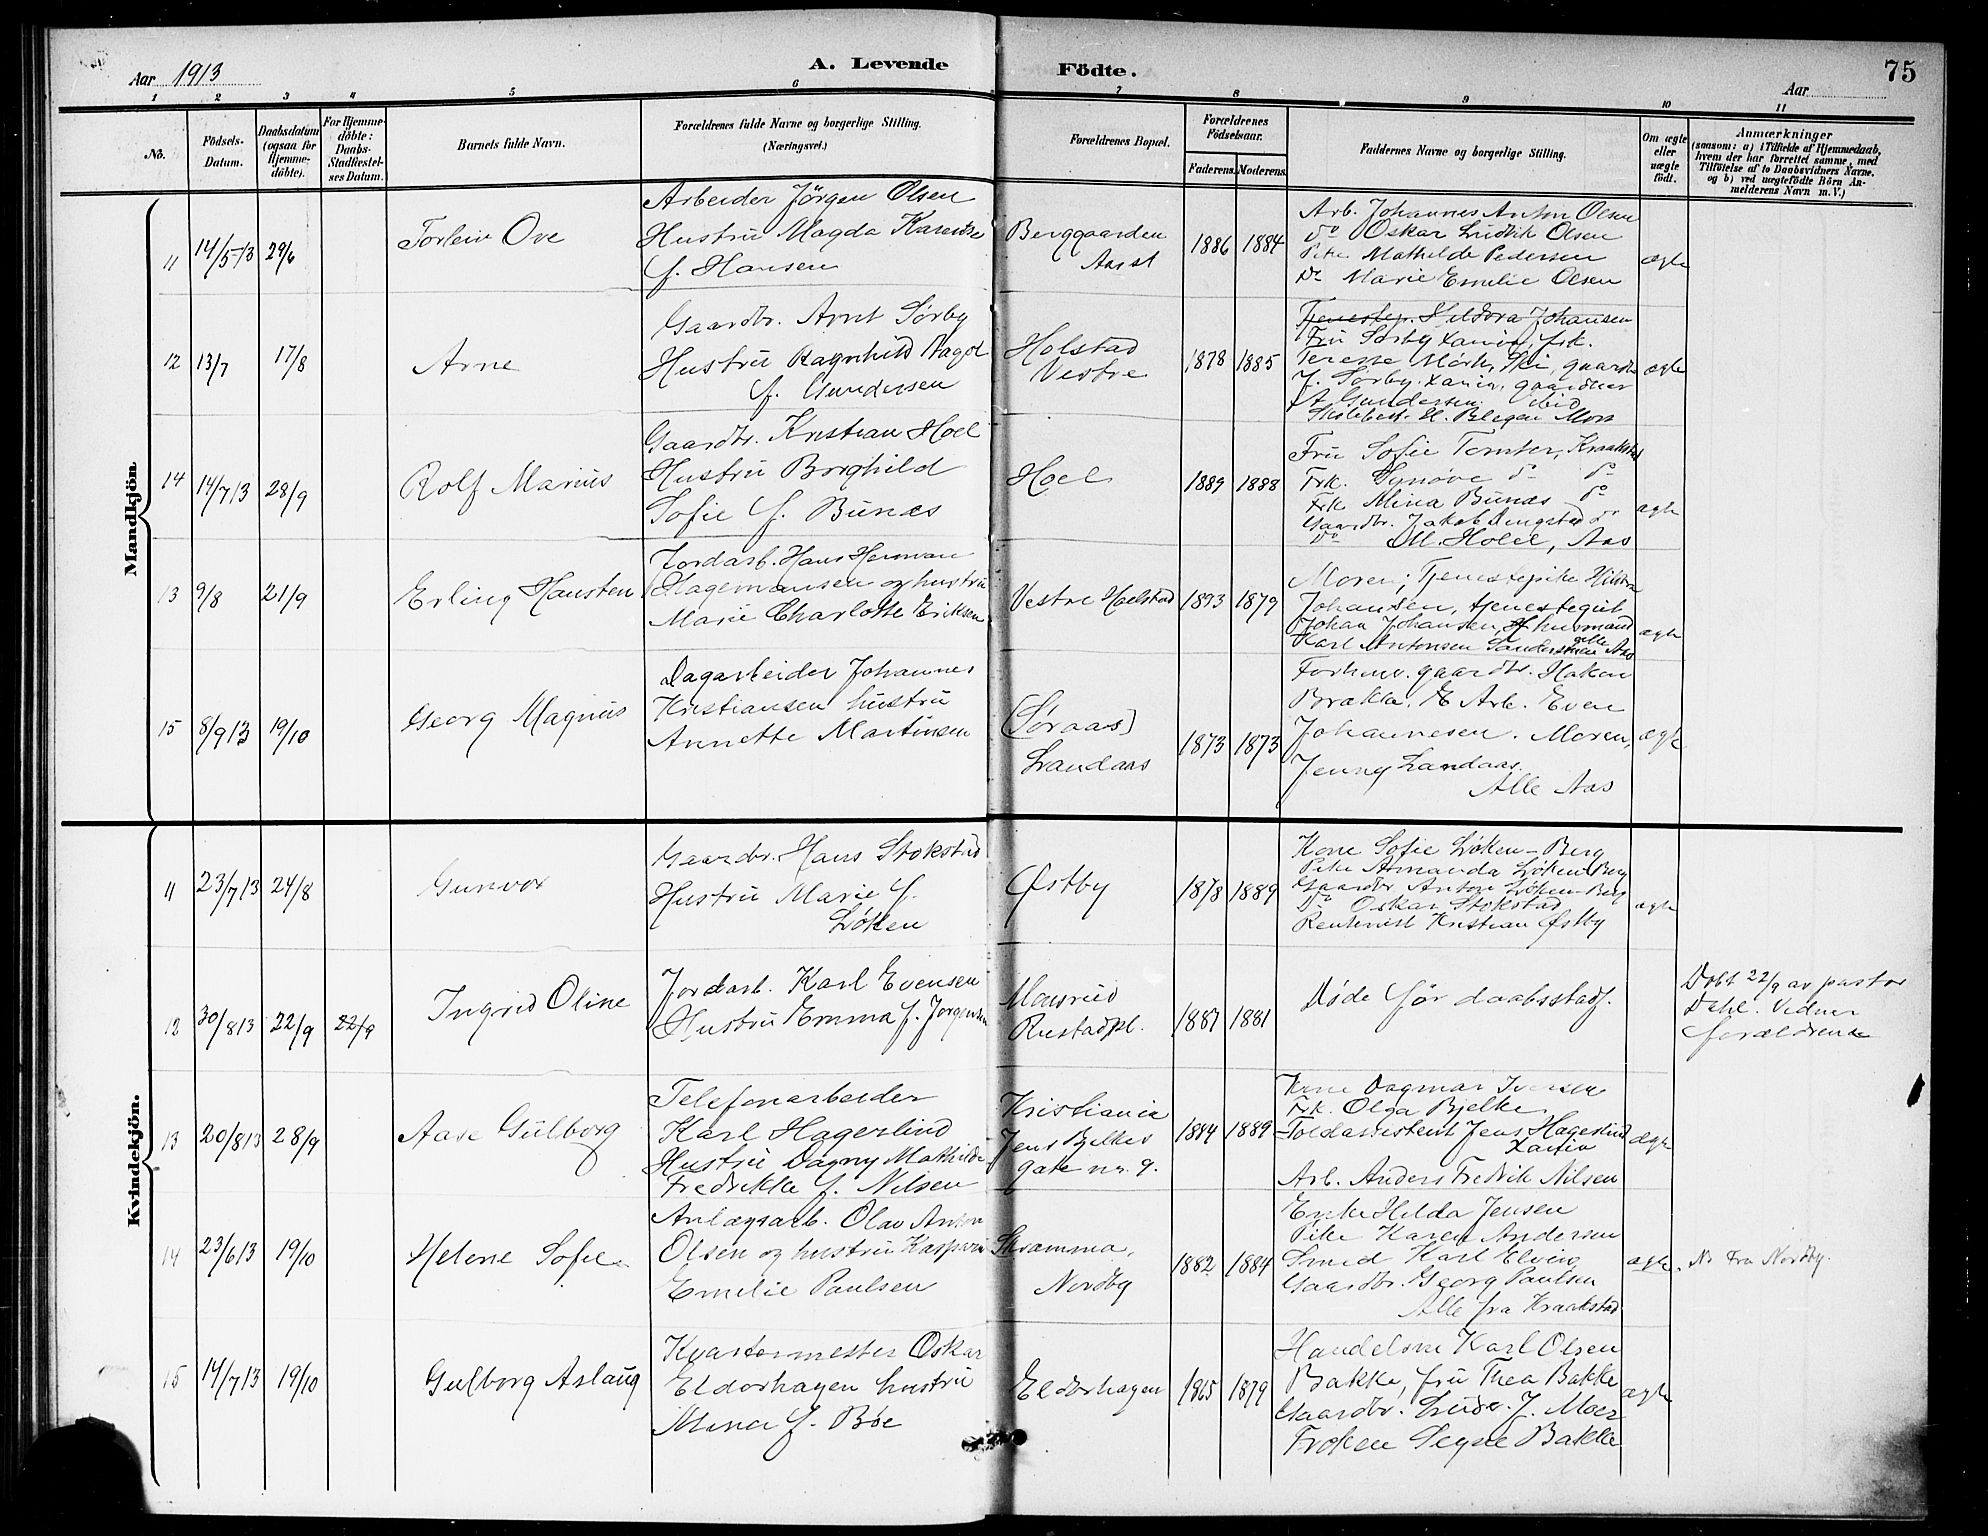 Aar 1913
A. Levende
Födte.
Aar
75
1 2 3 4 5 6 7 8 9 10 11
No.
Födsels-Datum.
Daabsdatum (ogsaa for Hjemme-döbte).
For Hjemme-döbte: Daabs-Stadfæstel-ses Datum.
Barnets fulde Navn.
Forældrenes fulde Navne og borgerlige Stilling. (Næringsvei.)
Forældrenes Bopæl.
Forældrenes Födselsaar.
Faderens. Moderens.
Faddernes Navne og borgerlige Stilling.
Om ægte eller uægte födt.
Anmærkninger
(saasom: a) i Tilfælde af Hjemmedaab, hvem der har forrettet samme, med Tilföielse af to Daabsvidners Navne, og b) ved uægtefödte Börn An-melderens Navn m. V.)
Mandkjön.
11 14/5-13 29/6
Torleiv Ove
Arbeider Jörgen Olsen
Hustru Magda Karendse
f. Hansen
Berggaarden
Aas st
1886 1884
Arb. Johannes Anton Olsen
Do Oskar Ludvik Olsen
Pike Mathilde Pedersen
Do Marie Emelie Olsen
ægte
12 13/7 17/8
Arne
Gaardbr. Arnt Sørby
Hustru Ragnhild Dagot
f. Gundersen
Holstad
Vestre
1878 1885
Tjenestep. Heldora Johansen
Fru Sørby Xania, frk.
Teresse Mörk, Ski, gaardbr
J. Sørby Xania, gaardbruer
A Gundersen
Skolebest. H. Blegen Moss
ægte
14 14/7 13 28/9
Rolf Marius
Gaardbr. Kristian Hoel
Hustru Borghild
Sofie f. Bunæs
Hoel
1889 1888
Fru Sofie Tomter, Kraakstad
Frk. Synöve do do
Frk Mina Bunæs do
Gaardbr. Jakob Ringstad do
Do M. Holil, Aas
ægte
13 9/8 21/9
Erling Hansten
Jordarb. Hans Herman
Hagemansen og hustru
Marie Charlotte Eriksen
Vestre Holstad
1893 1879
Moren; Tjenestepike Hildora
Johansen, tjenestegut
Johan Johansen, husmand
Karl Antonsen Sanderstuen alle Aas
ægte
15 8/9 13 19/10
Georg Magnus
Dagarbeider Johannes
Kristiansen hustru
Annette Martinsen
(Søraas)
Landaas
1873 1873
Forhenv. gaardbr. Hakon
Brække, E Arb. Even
Johannesen. Moren,
Jenny Landaas.
Alle Aas
ægte
Kvindekjön.
11 23/7 13 24/8
Gunvor
Gaardbr. Hans Stokstad
Hustru Marie f.
Løken
Østby
1878 1889
Kone Sofie Løken-Berg
Pike Amanda Løken Berg
Gaardbr Anton Løken-Berg
Do Oskar Stokstad
Rentenist Kristian Østby
ægte
12 30/8 13 22/9 22/9
Ingrid Oline
Jordarb. Karl Evensen
Hustru Emma f. Jørgensen
Monsrud
Rustadpl.
1887 1881
Døde før daabsstadf.
Døbt 22/9 av pastor
Dehl. Vidner
forældrene
13 20/8 13 28/9
Aase Gulborg
Telefonarbeider
Karl Hagerlind
Hustru Dagny Mathilde
Fredrikke f. Nilsen
Kristiania
Jens Bjelkes
gate nr. 9.
1884 1889
Kone Dagmar Iversen
Frk. Olga Bjelke
Toldassistent Jens Hagerlind
Xania
Arb. Anders Fredrik Nilsen
ægte
14 23/6 13 19/10
Helene Sofie
Anlægsarb. Olav Anton
Olsen og hustru Kasparin
Emelie Paulsen
Skramma,
Nordby
1882 1884
Enke Helda Jensen
Pike Karen Andersen
Smed Karl Elving
Gaardbr. Georg Paulsen
Alle fra Kraakstad
ægte
Nr fra Nordby.
15 14/7 13 19/10
Gulborg Aslaug
Kvartermester Oskar
Elderhagen hustru
Mina f. Bøe
Elderhagen
1865 1879
Handelsm Karl Olsen
Bakke, fru Thea Bakke
Gaardbr. Ludv. J. Moer
Frøken Signe Bakke
ægte